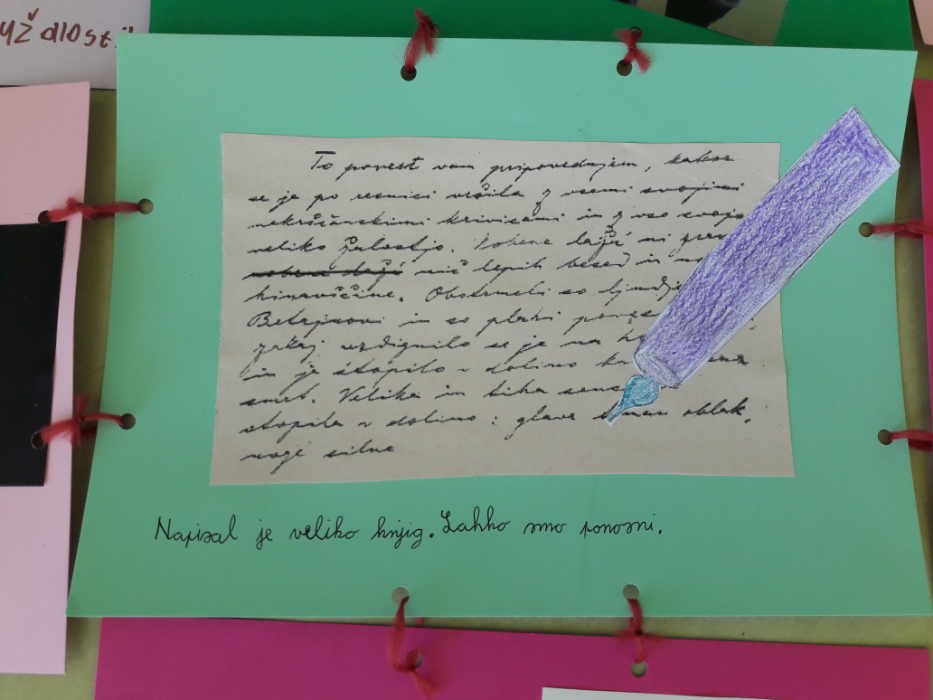 To povest vam pripovedujem, kakor
se je po resnici vršila z vsemi svojimi
nekrščanskimi krivicami in z vso svojo
veliko žalostjo. Nobene laži ni
nobene laži nič lepih besed in
hinavščine. Obstrmeli so ljudje
Betajnovi in so plahi
zakaj vzdignilo se je na
in je stopilo v dolino
smrt. Velika in tiha senca
stopila v dolino: glava oblak,
noge silne
Napisal je veliko knjig. Lahko smo ponosni.